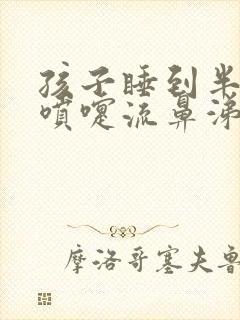 孩子睡到半
喷嚏流鼻涕
摩洛哥塞夫鲁